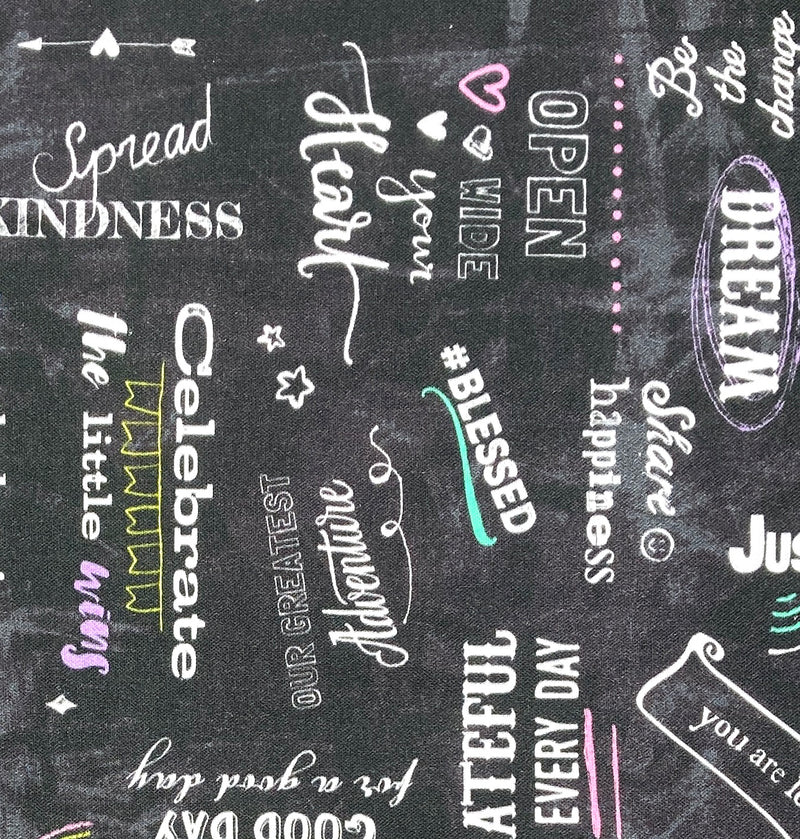 Spread
KINDNESS
OPEN
WIDE
your
Heart
Be
the
change
DREAM
Share
happiness
#BLESSED
Celebrate
the little
wins
OUR GREATEST
Adventure
ATEFUL
EVERY DAY
JUS
you are lo
for a good day
GOOD DAY